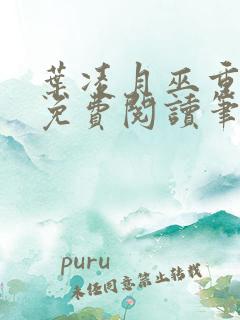 葉凌月巫重
免費閱讀筆
puru
未經同意禁止轉載